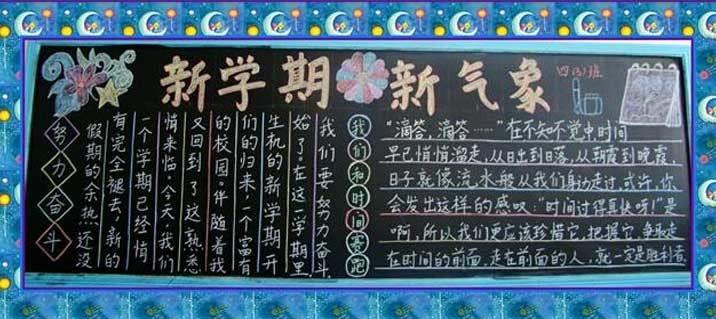 新学期 新气象
四(3)班
努力奋斗
假期的余热还没
有完全褪去,新的
一个学期已经悄
悄来临,今天,我们
又回到了这熟悉
的校园。伴随着我
们的归来,一个富有
生机的新学期开
始了。在这一学期里
我们要努力奋斗.
我们和时间赛跑
“滴答,滴答……”在不知不觉中时间
早已悄悄溜走,从日出到日落,从朝霞到晚霞,
日子就像流水般从我们身边走过,或许,你
会发出这样的感叹:“时间过得真快呀!”是
啊,所以我们更应该珍惜它,把握它,争取走
在时间的前面,走在前面的人,就一定是胜利者.